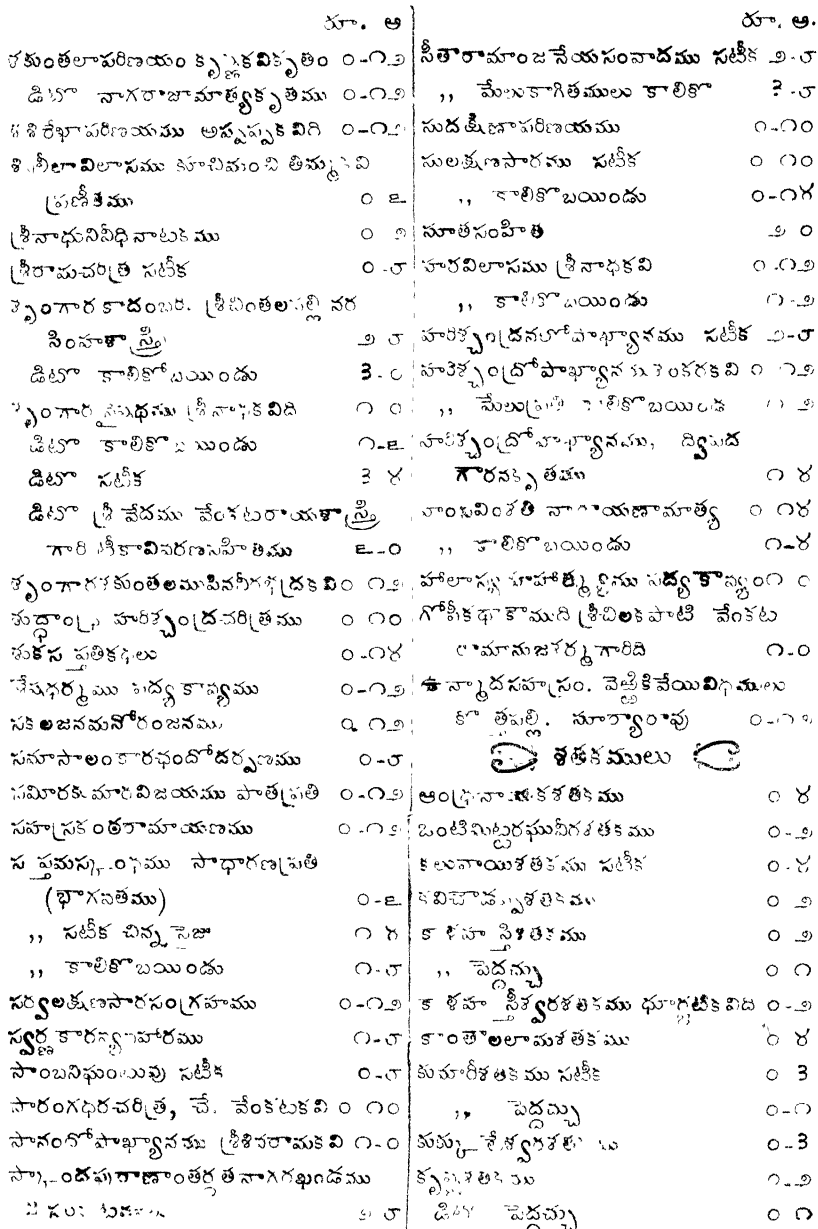 రూ. ఆ
శకుంతలాపరిణయం కృష్ణకవికృతం ౦-౧౨
డిటో నాగరాజామాత్యకృతము ౦-౧౨
శశిరేఖాపరిణయము అప్పప్పకవిగి ౦-౧౨
విలాసము కూచిమంచి తిమ్మకవి
ప్రణీతము ౦ ౬
శ్రీనాధునివీధినాటకము ౦ ౨
శ్రీరామచరిత్ర సటీక ౦-౮
శృంగారకాదంబరి. శ్రీచింతలపల్లి నర
సింహశాస్త్రి ౨ ౮
డిటో కాలికోబయిండు ౩-౦
శృంగారనైషధము శ్రీనాథకవిది ౧ ౦
డిటో కాలికోబయిండు ౧-౬
డిటో సటీక ౩ ౪
డిటో శ్రీ వేదము వేంకటరాయశాస్త్రి
గారి టీకావివరణసహితము ౬-౦
శృంగారశకుంతలముపినవీరభద్రకవిం ౧౨
శుద్ధాంధ్ర హరిశ్చంద్రచరిత్రము ౦ ౧౦
శుకసప్తతికథలు ౦-౧౪
శేషధర్మము పద్యకావ్యము ౦-౧౨
సకలజనమనోరంజనము ౦ ౧౨
సమాసాలంకారఛందోదర్పణము ౦-౮
సమీరకుమారవిజయము పాతప్రతి ౦-౧౨
సహస్రకంఠరామాయణము ౦-౧౨
సప్తమస్కంధము సాధారణప్రతి
(భాగవతము) ౦-౬
,, సటీక చిన్నసైజు ౧ ౪
,, కాలికోబయిండు ౧-౮
సర్వలక్షణసారసంగ్రహము ౦-౧౨
స్వర్ణకారవ్యాహారము ౧-౮
సాంబనిఘంటువు సటీక ౦-౮
సారంగధరచరిత్ర, చే. వేంకటకవి ౦ ౧౦
సానందోపాఖ్యానము శ్రీశివరామకవి ౧-౦
స్కాందపురాణాంతర్గతనాగరఖండము
౨ ౮
రూ. ఆ.
సీతారామాంజనేయసంవాదము సటీక ౨-౮
,, మేలుకాగితములు కాలికో ౩-౮
సుదక్షిణాపరిణయము ౧-౧౦
సులక్షణసారము సటీక ౦ ౧౦
,, కాలికోబయిండు ౦-౧౪
సూతసంహిత ౨ ౦
హరవిలాసము శ్రీనాథకవి ౧-౧౨
,, కాలికోబయిండు ౧-౨
హరిశ్చంద్రనలోపాఖ్యానము సటీక ౨-౮
హరిశ్చంద్రోపాఖ్యానము శంకరకవి ౧ ౧౨
,, మేలుప్రతి కాలికోబయిండు ౧ ౨
హరిశ్చంద్రోపాఖ్యానము, ద్విపద
గౌరనకృతము ౧ ౪
హంసవింశతి నారాయణామాత్య ౦ ౧౪
,, కాలికోబయిండు ౧-౪
హాలాస్యమాహాత్మ్యము పద్యకావ్యం౧ ౦
గోపీకథాకౌముది శ్రీచిలకపాటి వేంకట
రామానుజశర్మగారిది ౧-౦
ఉన్మాదసహస్రం. వెఱ్ఱికివేయివిధములు
కొత్తపల్లి. సూర్యారావు ౦-౧౨
శతకములు
ఆంధ్రనాయకశతకము ౦ ౪
ఒంటిమిట్టరఘువీరశతకము ౦-౨
కలువాయిశతకము సటీక ౦-౪
కవిచౌడప్పశతకము ౦ ౨
కాళహస్తిశతకము ౦ ౨
,, పెద్దచ్చు ౦ ౧
కాళహస్తీశ్వరశతకము ధూర్జటికవిది ౦-౨
కాంతాలలామశతకము ౦ ౪
కుమారీశతకము సటీక ౦ ౩
,, పెద్దచ్చు ౦-౧
కుక్కుటేశ్వరశతకము ౦-౩
కృష్ణశతకము ౧-౨
డిటో పెద్దచ్చు ౦ ౧